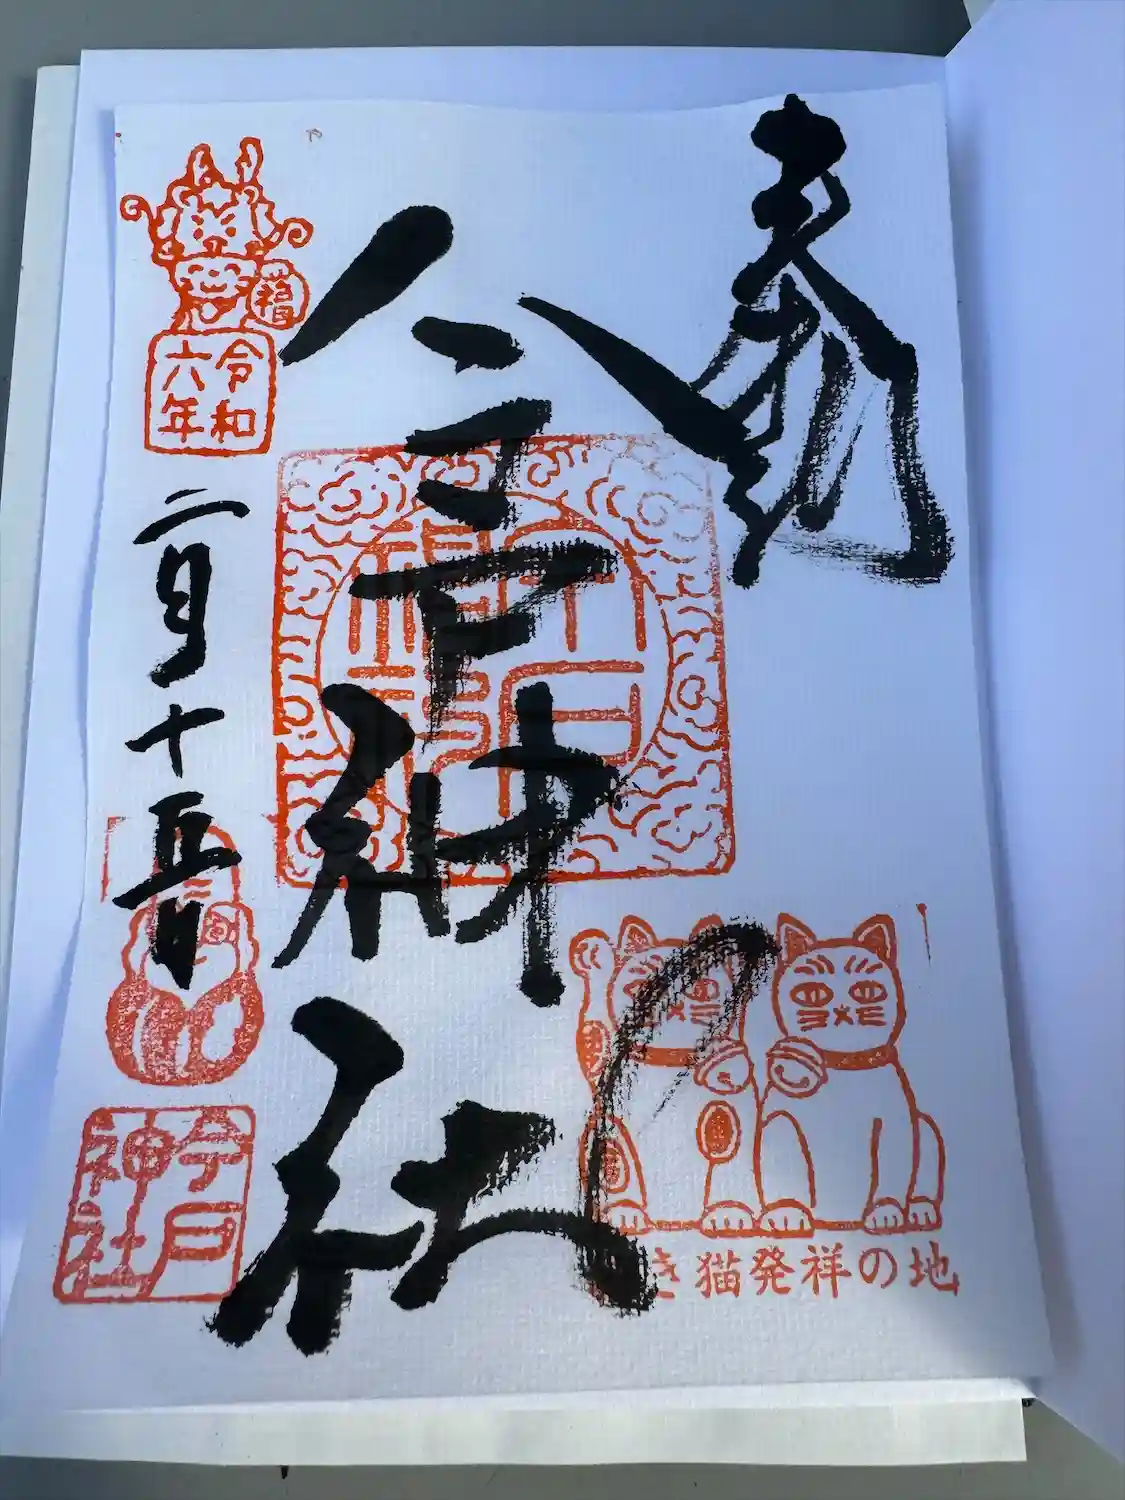 奉拝
今戸神社
福
令和
六年
二月十五日
今戸
神社
き猫発祥の地